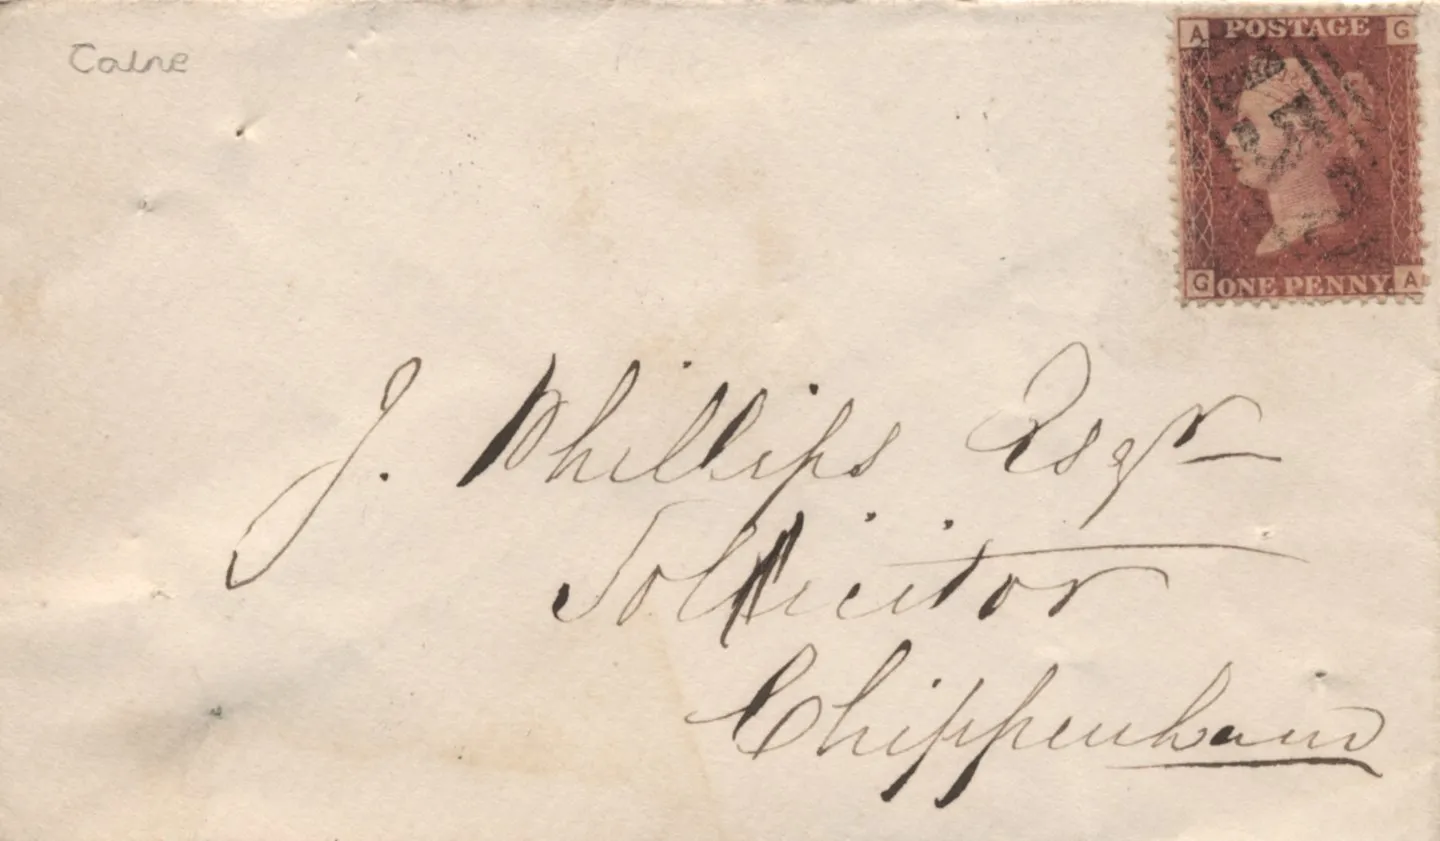 Calne
A POSTAGE G
G ONE PENNY. A
J. Phillips Esqr
Sollicitor
Chippenham